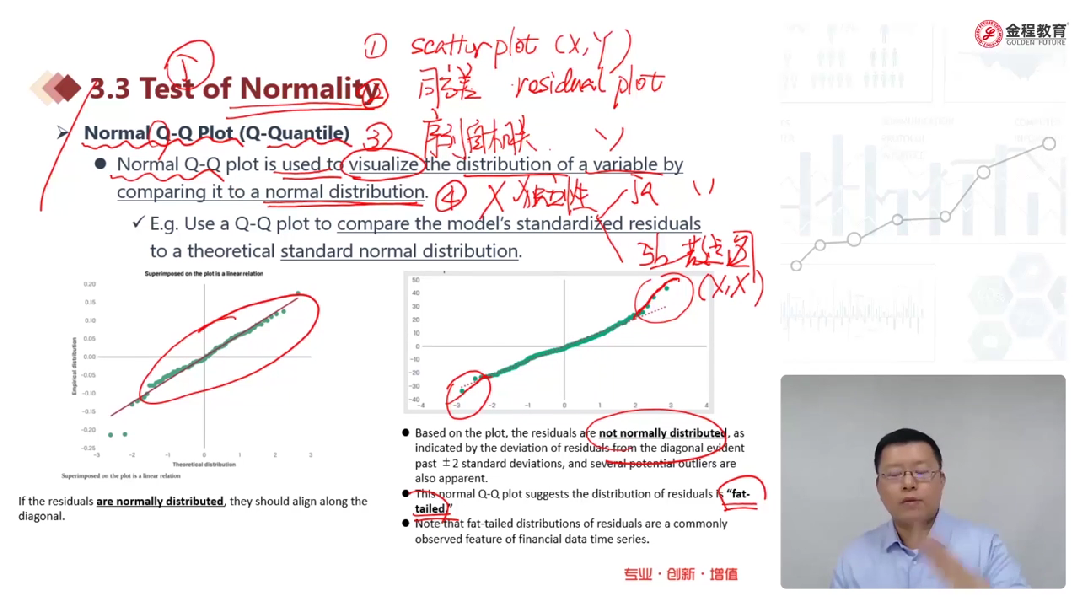 金程教育
GOLDEN FUTURE
① scatterplot (X, Y)
3.3 Test of Normality
② 同方差 residual plot
Normal Q-Q Plot (Q-Quantile)
③ 序列自相关
Normal Q-Q plot is used to visualize the distribution of a variable by
comparing it to a normal distribution.
④ X 独立性
E.g. Use a Q-Q plot to compare the model's standardized residuals
to a theoretical standard normal distribution.
散点图
(X, X)
Superimposed on the plot is a linear relation
0.20
0.15
0.10
0.05
0.00
-0.05
-0.10
-0.15
-0.20
-0.25
Empirical distribution
-3 -2 -1 0 1 2 3
Theoretical distribution
Superimposed on the plot is a linear relation
If the residuals are normally distributed, they should align along the
diagonal.
50
40
30
20
10
0
-10
-20
-30
-40
-4 -3 -2 -1 0 1 2 3 4
Based on the plot, the residuals are not normally distributed, as
indicated by the deviation of residuals from the diagonal evident
past ±2 standard deviations, and several potential outliers are
also apparent.
This normal Q-Q plot suggests the distribution of residuals is "fat-
tailed"
Note that fat-tailed distributions of residuals are a commonly
observed feature of financial data time series.
专业·创新·增值